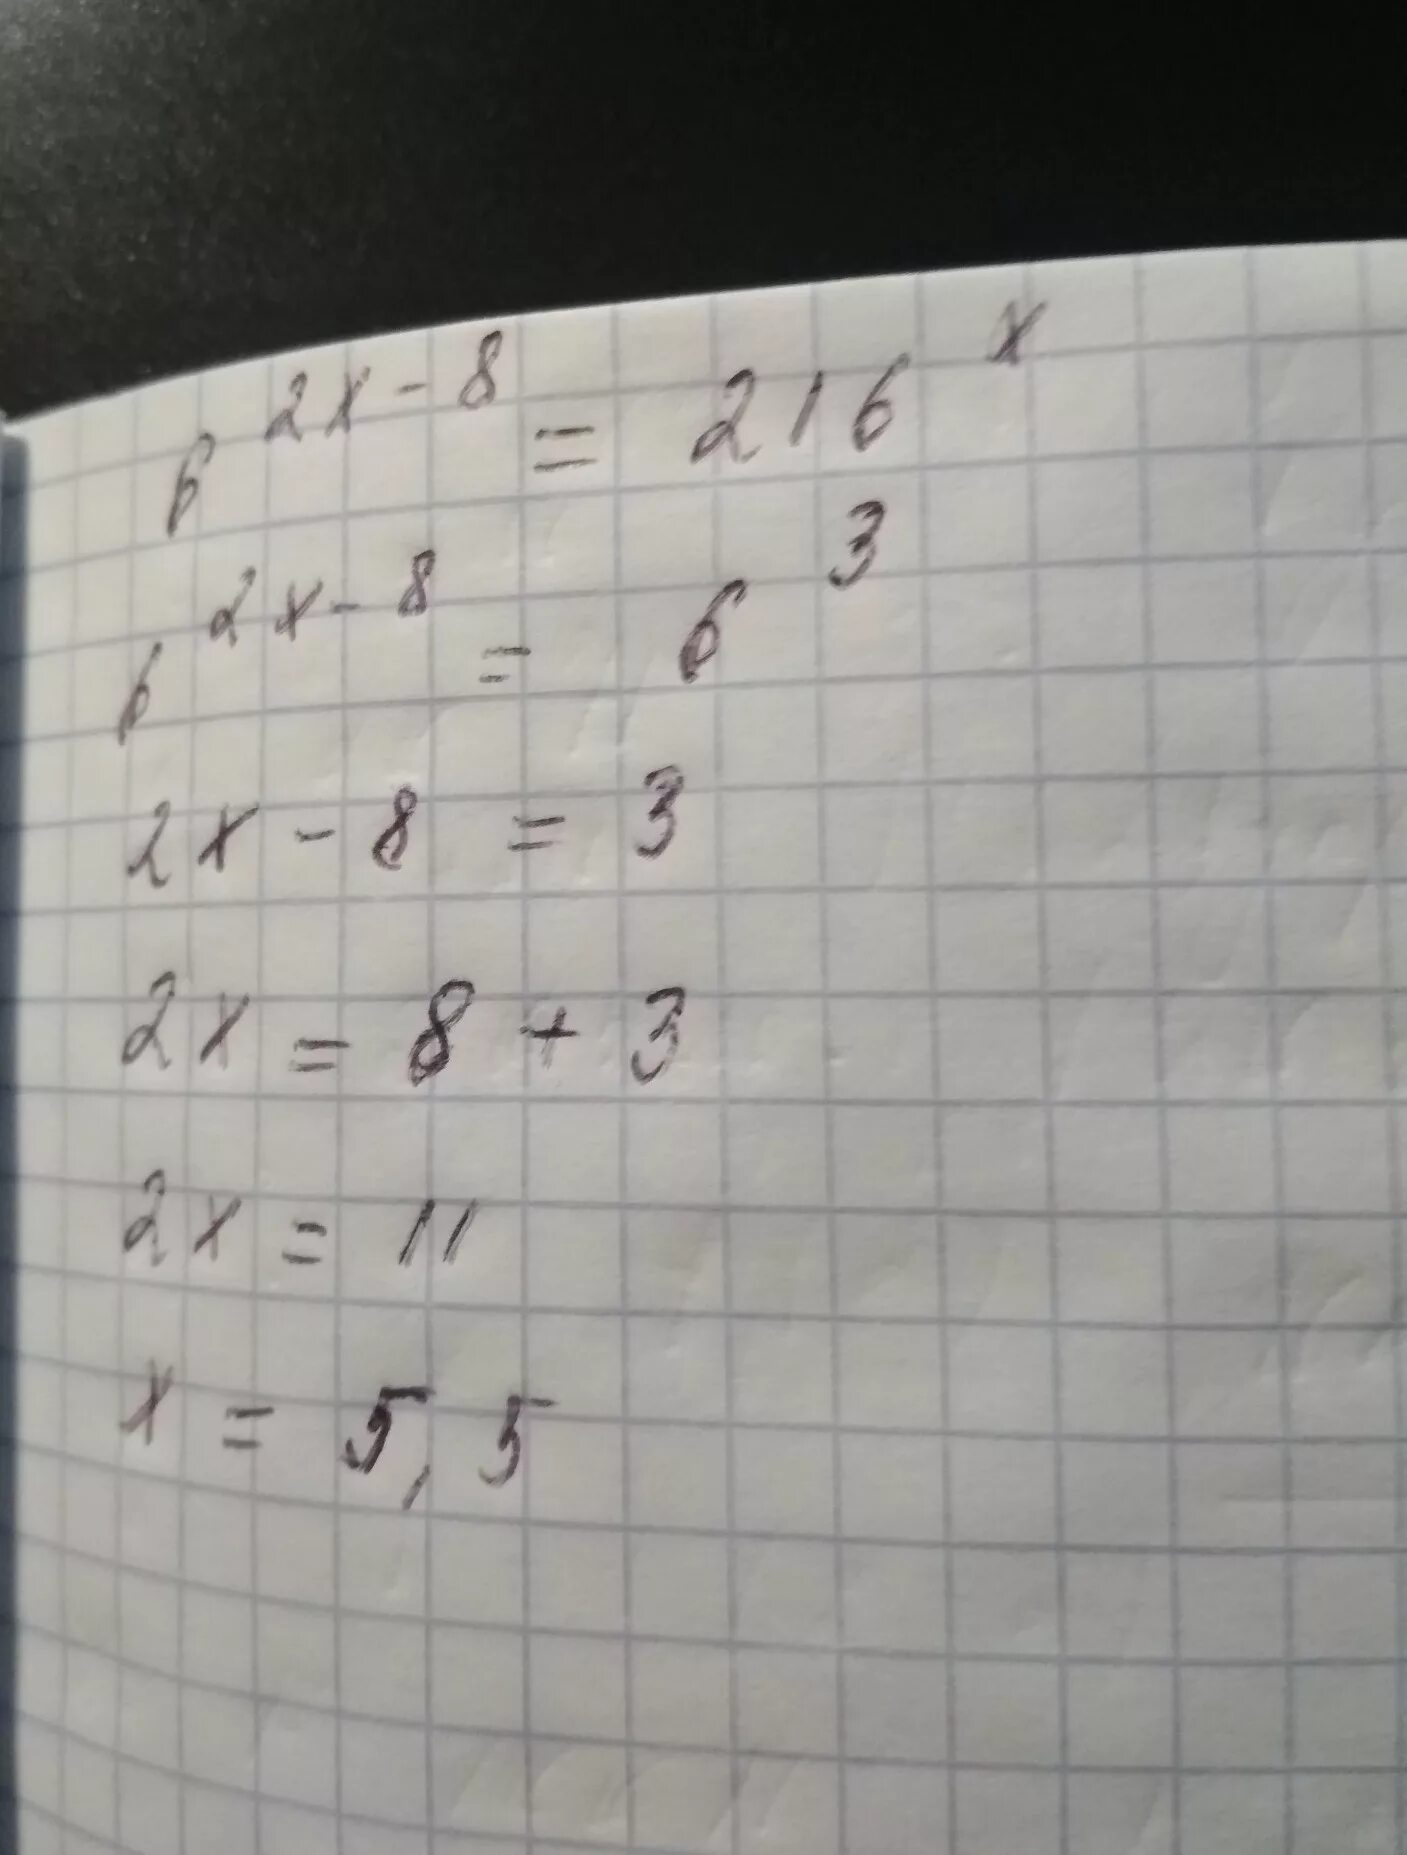 6^{2x-8} = 216^x
6^{2x-8} = 6^3
2x - 8 = 3
2x = 8 + 3
2x = 11
x = 5,5